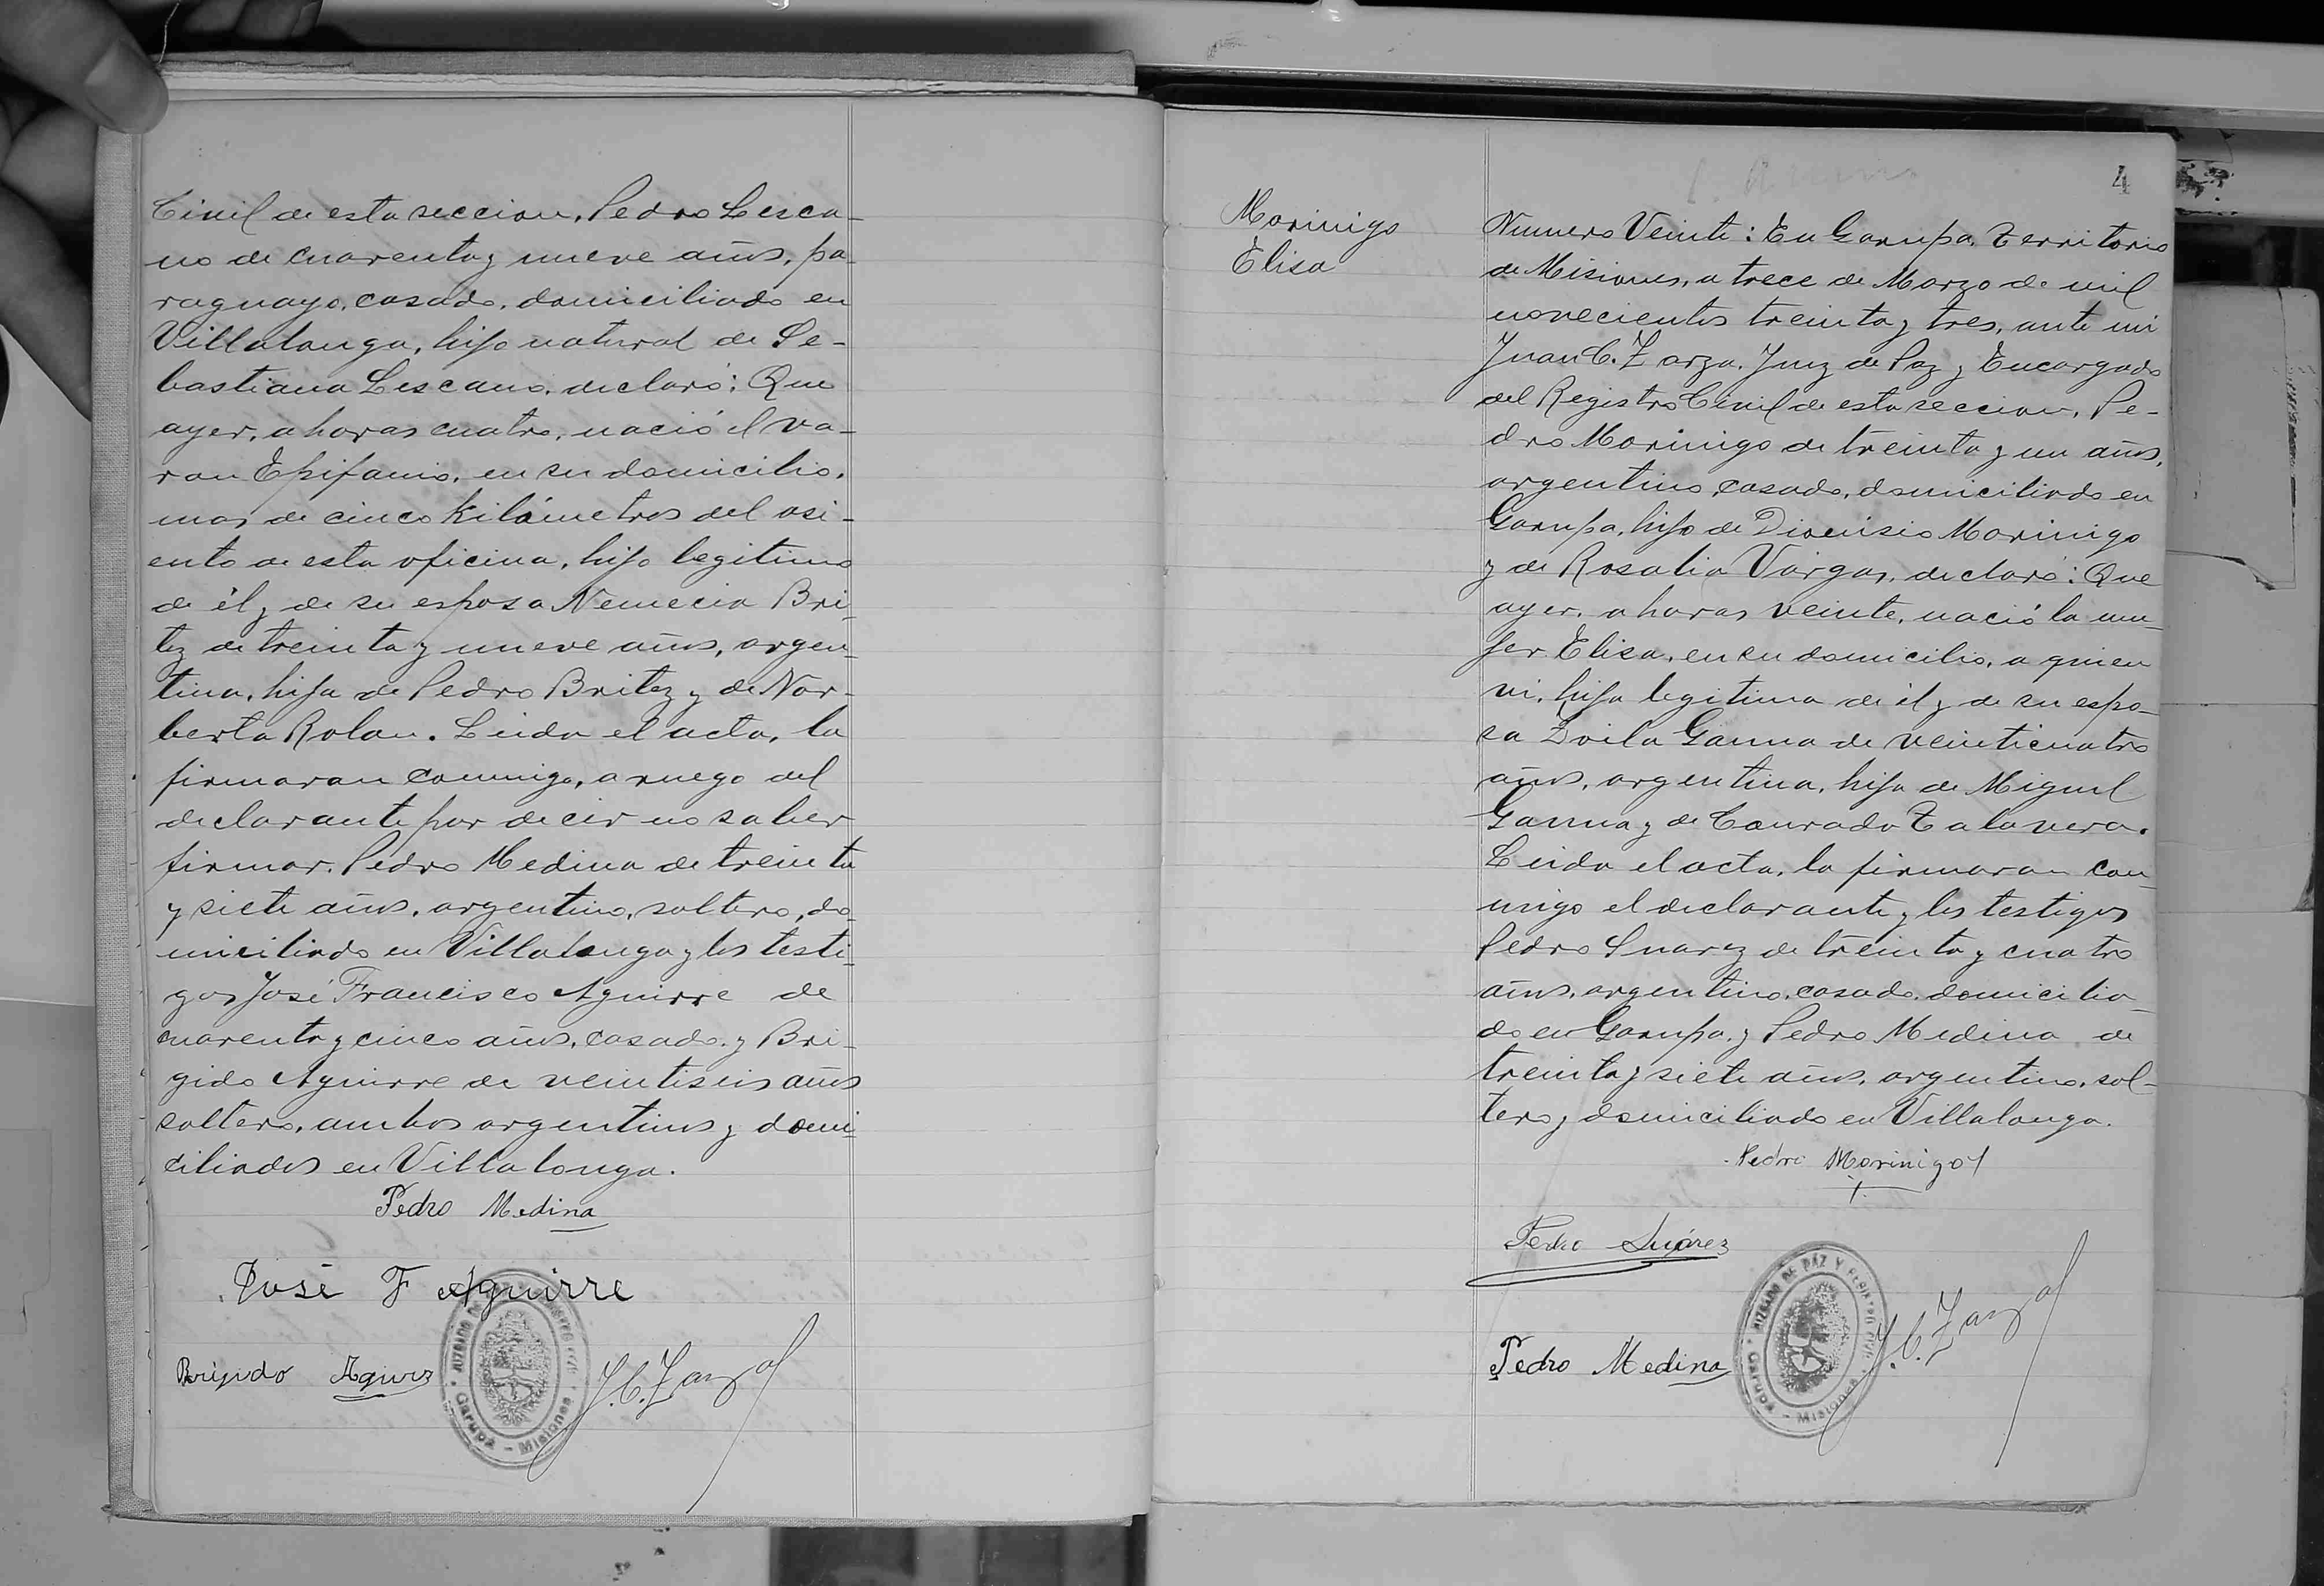 Civil de esta seccion, Pedro Lesca-
no de cuarenta y nueve años, pa-
raguayo, casado, domiciliado en
Villalonga, hijo natural de Se-
bastiana Lescano, declaró: Que
ayer, a horas cuatro, nació el va-
ron Epifanio, en su domicilio,
mas de cinco kilómetros del asi-
ento de esta oficina, hijo legitimo
de él y de su esposa Nemecia Bri-
tez de treinta y nueve años, argen-
tina, hija de Pedro Britez y de Nor-
berta Rolan. Leida el acta, la
firmaron conmigo, a ruego del
declarante por decir no saber
firmar, Pedro Medina de treinta
y siete años, argentino, soltero, do-
miciliado en Villalonga y los testi-
gos José Francisco Aguirre de
cuarenta y cinco años, casado, y Bri-
gido Aguirre de veintiseis años
soltero, ambos argentinos y domi-
ciliados en Villalonga.
Pedro Medina
José F Aguirre
Brigido
J.C. Zarza
Garupá - Misiones
4
Morinigo
Elisa
Numero Veinte: En Garupa, Territorio
de Misiones, a trece de Marzo de mil
novecientos treinta y tres, ante mi
Juan C. Zarza, Juez de Paz y Encargado
del Registro Civil de esta seccion, Pe-
dro Morinigo de treinta y un años,
argentino, casado, domiciliado en
Garupa, hijo de Dionisio Morinigo
y de Rosalia Vargas, declaró: Que
ayer, a horas veinte, nació la mu-
jer Elisa, en su domicilio, a quien
vi, hija legitima de él y de su espo-
sa Zoila Gauna de veinticuatro
años, argentina, hija de Miguel
Gauna y de Conrada Talavera.
Leida el acta, la firmaron con-
migo el declarante y los testigos
Pedro Suarez de treinta y cuatro
años, argentino, casado, domicilia-
do en Garupa, y Pedro Medina de
treinta y siete años, argentino, sol-
tero y domiciliado en Villalonga.
Pedro Morinigo
Pedro Suárez
Pedro Medina
JUZGADO DE PAZ Y REGISTRO CIVIL
Garupá - Misiones
J.C. Zarza